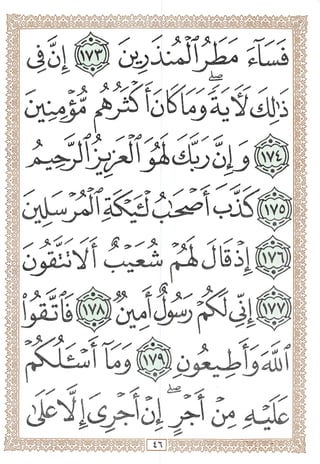 فَسَآءَ مَطَرُ الْمُنذَرِينَ ﴿١٧٣﴾ إِنَّ فِى
ذَٰلِكَ لَآيَةً ۖ وَمَا كَانَ أَكْثَرُهُم مُّؤْمِنِينَ
﴿١٧٤﴾ وَإِنَّ رَبَّكَ لَهُوَ الْعَزِيزُ الرَّحِيمُ
﴿١٧٥﴾ كَذَّبَ أَصْحَٰبُ لْـَٔيْكَةِ الْمُرْسَلِينَ
﴿١٧٦﴾ إِذْ قَالَ لَهُمْ شُعَيْبٌ أَلَا تَتَّقُونَ
﴿١٧٧﴾ إِنِّى لَكُمْ رَسُولٌ أَمِينٌ ﴿١٧٨﴾ فَاتَّقُوا
اللَّهَ وَأَطِيعُونِ ﴿١٧٩﴾ وَمَآ أَسْـَٔلُكُمْ
عَلَيْهِ مِنْ أَجْرٍ ۖ إِنْ أَجْرِىَ إِلَّا عَلَىٰ
٤٦